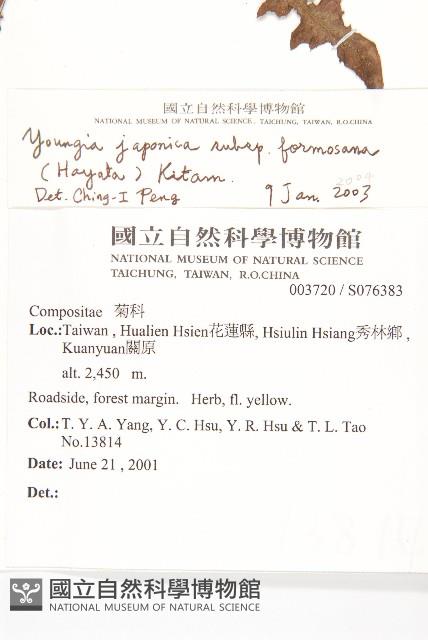 國立自然科學博物館
NATIONAL MUSEUM OF NATURAL SCIENCE, TAICHUNG, TAIWAN, R.O.CHINA
Youngia japonica subsp. formosana
(Hayata) Kitam.
2004
Det. Ching-I Peng 9 Jan. 2003
國立自然科學博物館
NATIONAL MUSEUM OF NATURAL SCIENCE
TAICHUNG, TAIWAN, R.O.CHINA
003720 / S076383
Compositae 菊科
Loc.:Taiwan , Hualien Hsien花蓮縣, Hsiulin Hsiang秀林鄉 ,
Kuanyuan關原
alt. 2,450 m.
Roadside, forest margin. Herb, fl. yellow.
Col.: T. Y. A. Yang, Y. C. Hsu, Y. R. Hsu & T. L. Tao
No.13814
Date: June 21 , 2001
Det.:
國立自然科學博物館
NATIONAL MUSEUM OF NATURAL SCIENCE